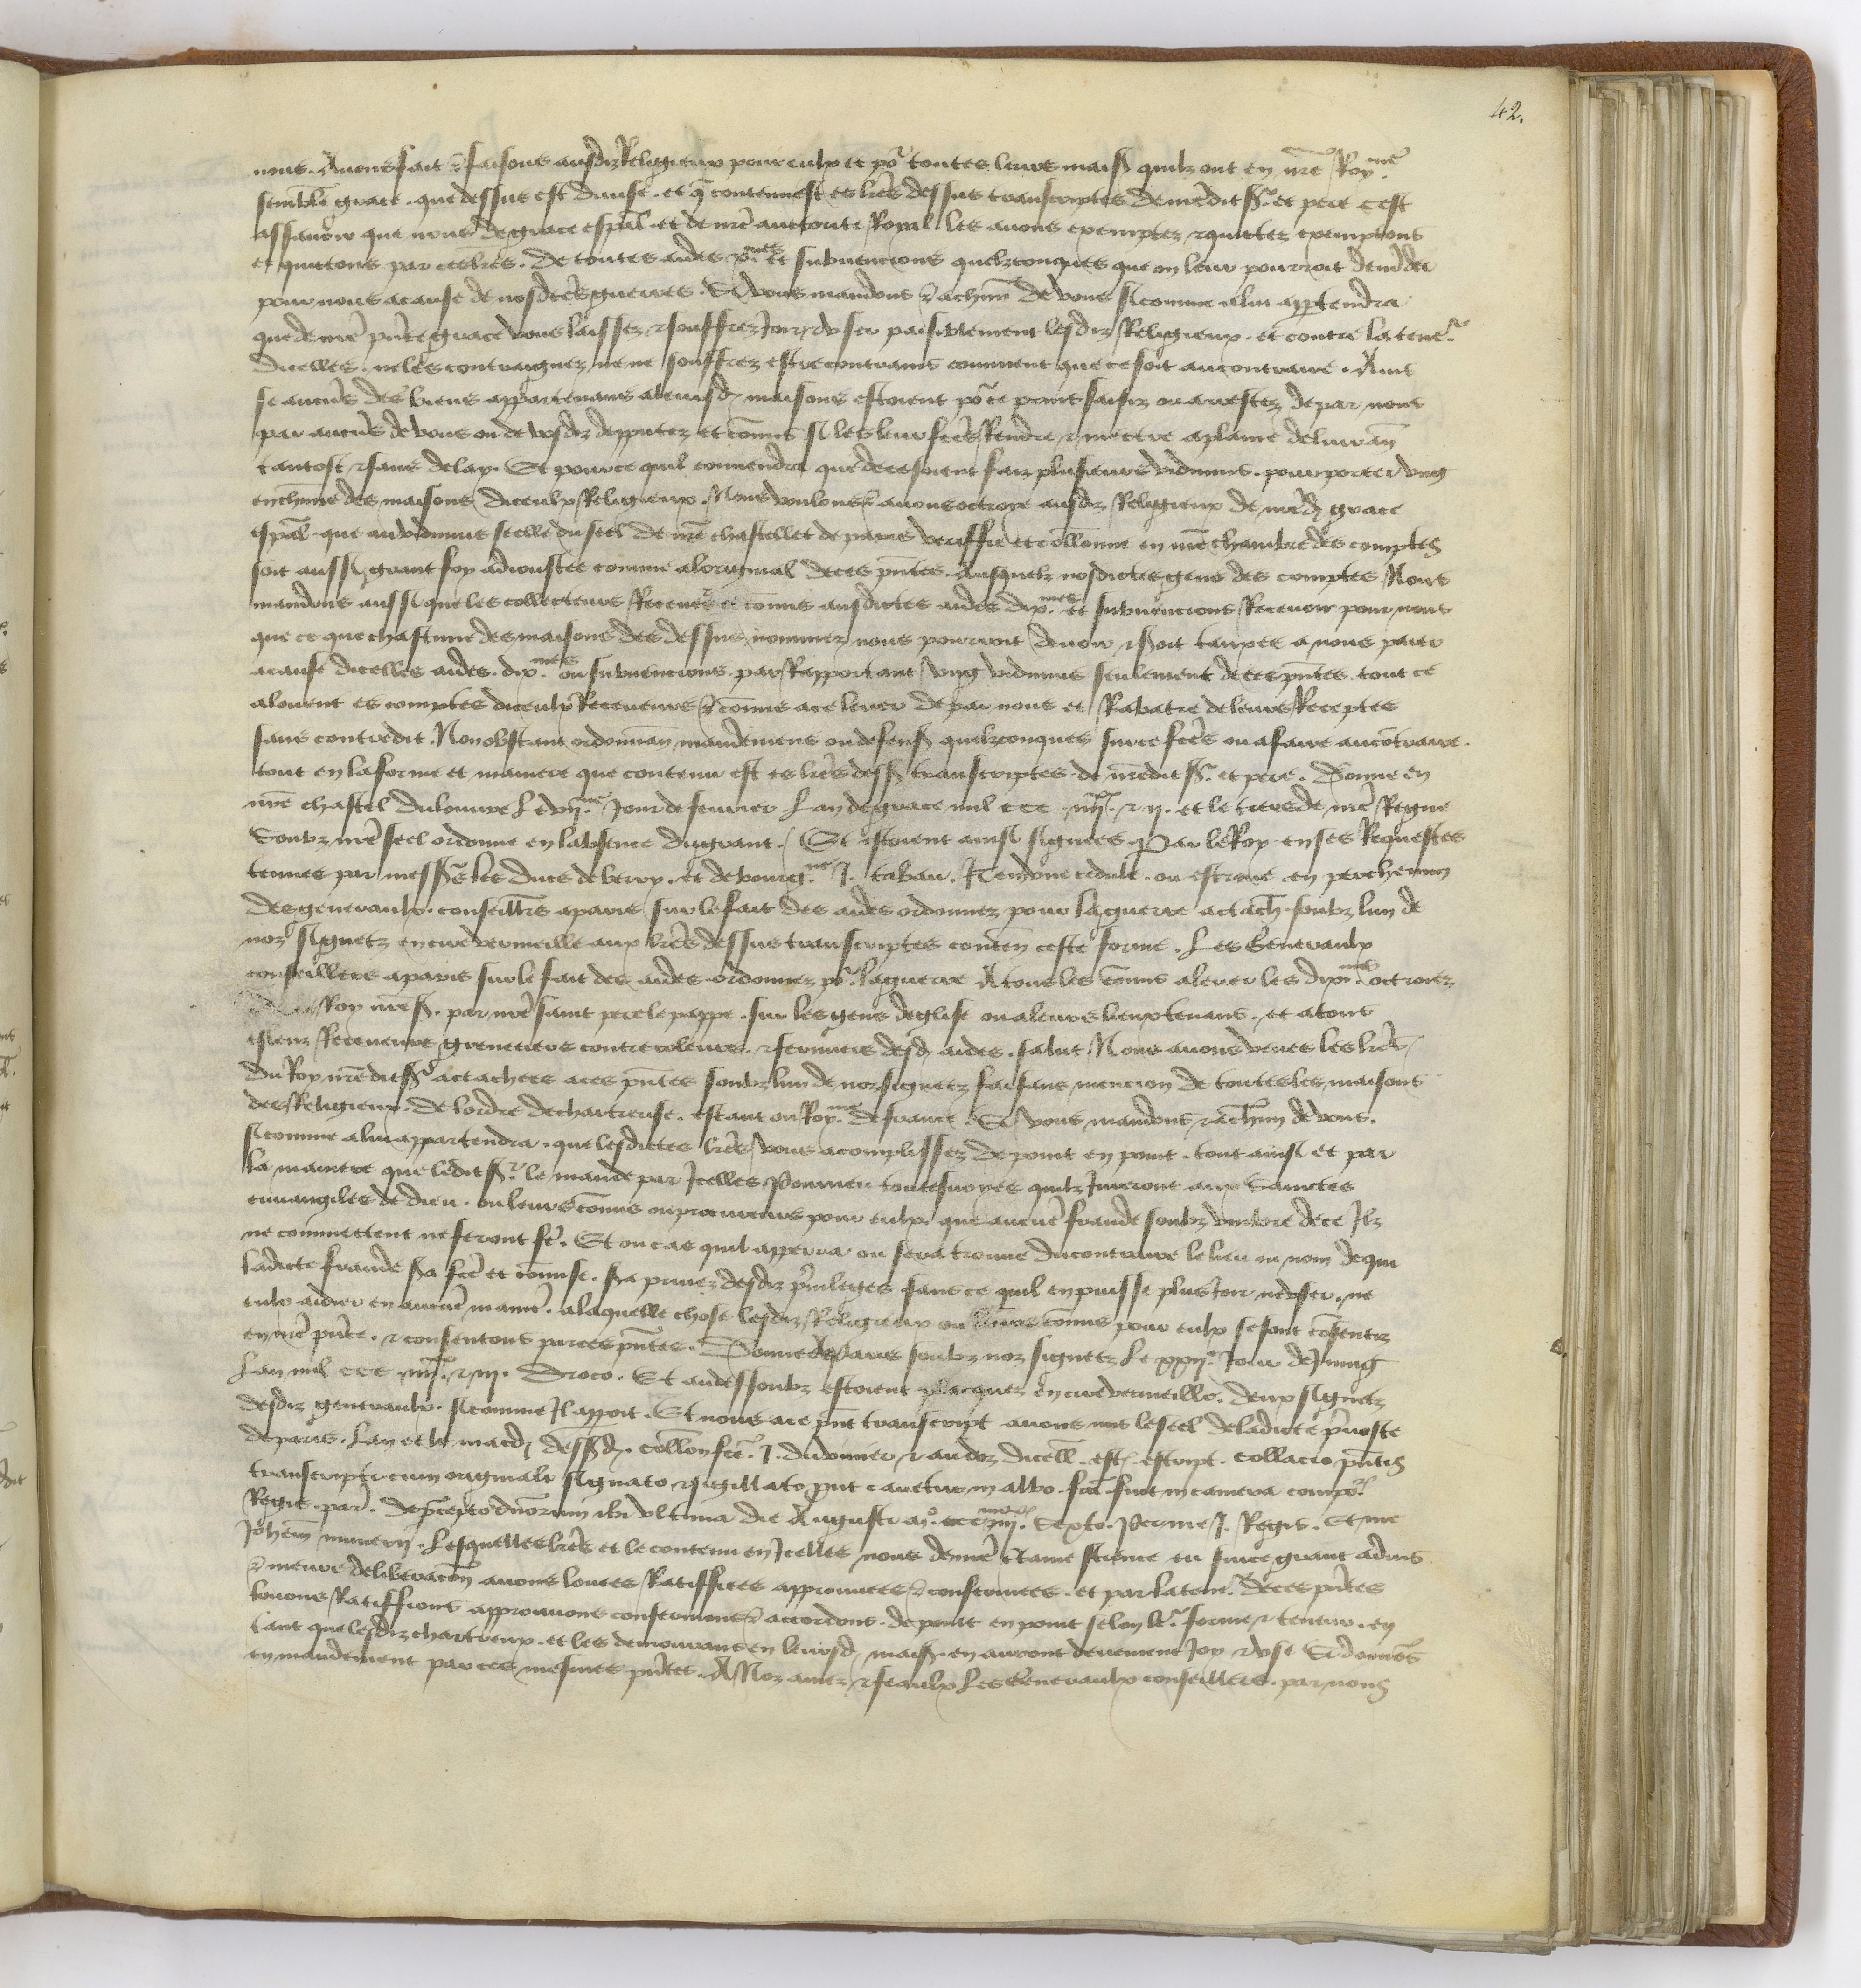 42.
nous. Avons fait & faisons ausdiz Religieux pour eulx et por toutes leurs mais. quilz ont en nre Royme
semble grace. que dessus est divise. et q contenu est es lres dessus transcriptes de nredit sr. et pere cest
assavoir que nous de grace espal. et de nre auctorite Royal les avons exemptez & quictez exemptons
et quictons par ces lres. de toutes aides xmes et subvencions quelzconques que on leur pourroit demder
pour nous acause de nosdces guerres. Si vous mandons & achun de vous si comme alui appartendra
que de nre pnte grace vous laissez & souffrez Joir & vser paisiblement lesdiz Religieux. et contre la tener
dicelles. ne les contraignez ne ne souffrez estre contrains comment que ce soit au contraire. Ains
se aucus des biens appartenans a leursd. maisons estoient por ce point saisiz ou arrestez de par nous
par aucus de vous ou de vosdiz depputez et comis si les leur fces Rendre & mectre a plaine delivran
tantost & sans delay. Et pource quil convendra que de ce soient faiz plusieurs vidimus. pour porter vng
en chune des maisons diceulx Religieux. Nous voulons & avons octroye ausdiz Religieux de nred. grace
espal. que au vidimus seelle du seel de nre chastellet de paris veriffie et collonne en nre chambre des comptes
soit aussi grant foy adioustee comme a loriginal de ces pntes. Ausquelz nosdictes gens des comptes Nous
mandons aussi que les collecteurs Recever et comis ausdictes aides dixmes et subvencions Recevoir pour nous
que ce que chascune des maisons des dessus nommez nous pourront devoir & soit tauxee a nous paier
acause dicelles aides. dixmes ou subvencions. par Rapportant vng vidimus seulement de ces pntes. tout ce
alouent es comptes diceulx Receveurs & comis a ce lever de par nous et Rabatre de leurs Receptes
sans contredit. Nonobstant ordonnan mandemens ou defens. quelzconques surce fces ou afaire au contraire.
tout en la forme et maniere que contenu est es lres dess. transcriptes. de nredit sr. et pere. Donne en
nre chastel du louvre le vijme Jour de fevrier Lan de grace mil CCC iiijxx & ij. et le tiers de nre Regne
Soubz nre seel ordonne en labsence du grant. Et estoient ainsi signees. Par le Roy en ses Requestes
tenues par messrs les ducs de berry. et de bourgne J. tabari. Item vne cedule. ou escrive en perchemin
des generaulx. conseilliers a paris sur le fait des aides ordonnez pour la guerre actach. soubz lun de
noz signetz en cire vermeille aux lres dessus transcriptes conten ceste forme. Les Generaulx
conseilliers a paris sur le fait des aides ordonnez por la guerre A tous les comis a lever les dixmes octroiez
Roy nre s. par nre saint pere le pappe. sur les gens deglise ou a leurs lieuxtenans. et a tous
esleuz Receveurs grenetiers contreroleurs. & fermiers desd. aides. salut. Nous avons veues les lres
du Roy nredit sr actachees a ces pntes soubz lun de noz signetz faisans mencion de toutes les maisons
des Religieux. de lordre de chartreuse. estant ou Royme de france. Si vous mandons & achun de vous.
si comme alui appartendra. que lesdictes lres vous acomplissez de point en point. tout ainsi et par
la maniere que ledit sr. le mande par Icelles Pourveu toutesuoyes quilz Jureront aux Sainctes
euuangiles de dieu. ou leurs comis ou procureurs pour eulx que aucune fraude soubz vmbre de ce Ilz
ne commettent ne feront fe. Et ou cas quil apperra ou sera trouve du contraire le lieu ou nom de qui
ladicte fraude sa fce et comise. sa privez desdiz privileges sans ce quil en puisse plus Joir ne vser. ne
eulx aidier en aucue manie. alaquelle chose lesdiz Religieux ou leurs comis pour eulx se sont cosentiz
en nre pnce. & consentons par ces pntes. Donne a Paris soubz noz signetz Le xxije Jour de Juing
Lan mil CCC iiijxx & iij. Droco. Et au dessoubz estoient placquez en cire vermeille. deux signetz
desdiz generaulx. si comme Il appoit. Et nous a ce pnt transcript avons mis le seel de ladicte prevoste
de paris. Lan et le macd. dessd. Collon fce. J. duvivier & au doz dicell. est escript. Collacio pntis
transcripti cum originali signato & sigillato put cavetur in albo. fca fuit in camera compor
Regis. par. de precepto dnorum ibi vltima die Augusti ao. ccc iiijxx. Sexto. Per me J. Regis. Et me
Johem muneri. Lesquelles lres et le contenu en Icelles nous de nre ctaine science eu surce grant advis
& meure deliberacon avons louees Ratiffiees approuvees & confermees. et par la tener de ces pntes
louons Ratiffions approuvons confermons & accordons. de point en point selon ler forme & teneur. en
tant que lesdiz chartreux. et les demourans en leursd. mais. en auront deuement Joy & vse Si donnons
en mandement par ces mesmes pntes. A Noz amez & feaulx Les Generaulx conseilliers. par nous